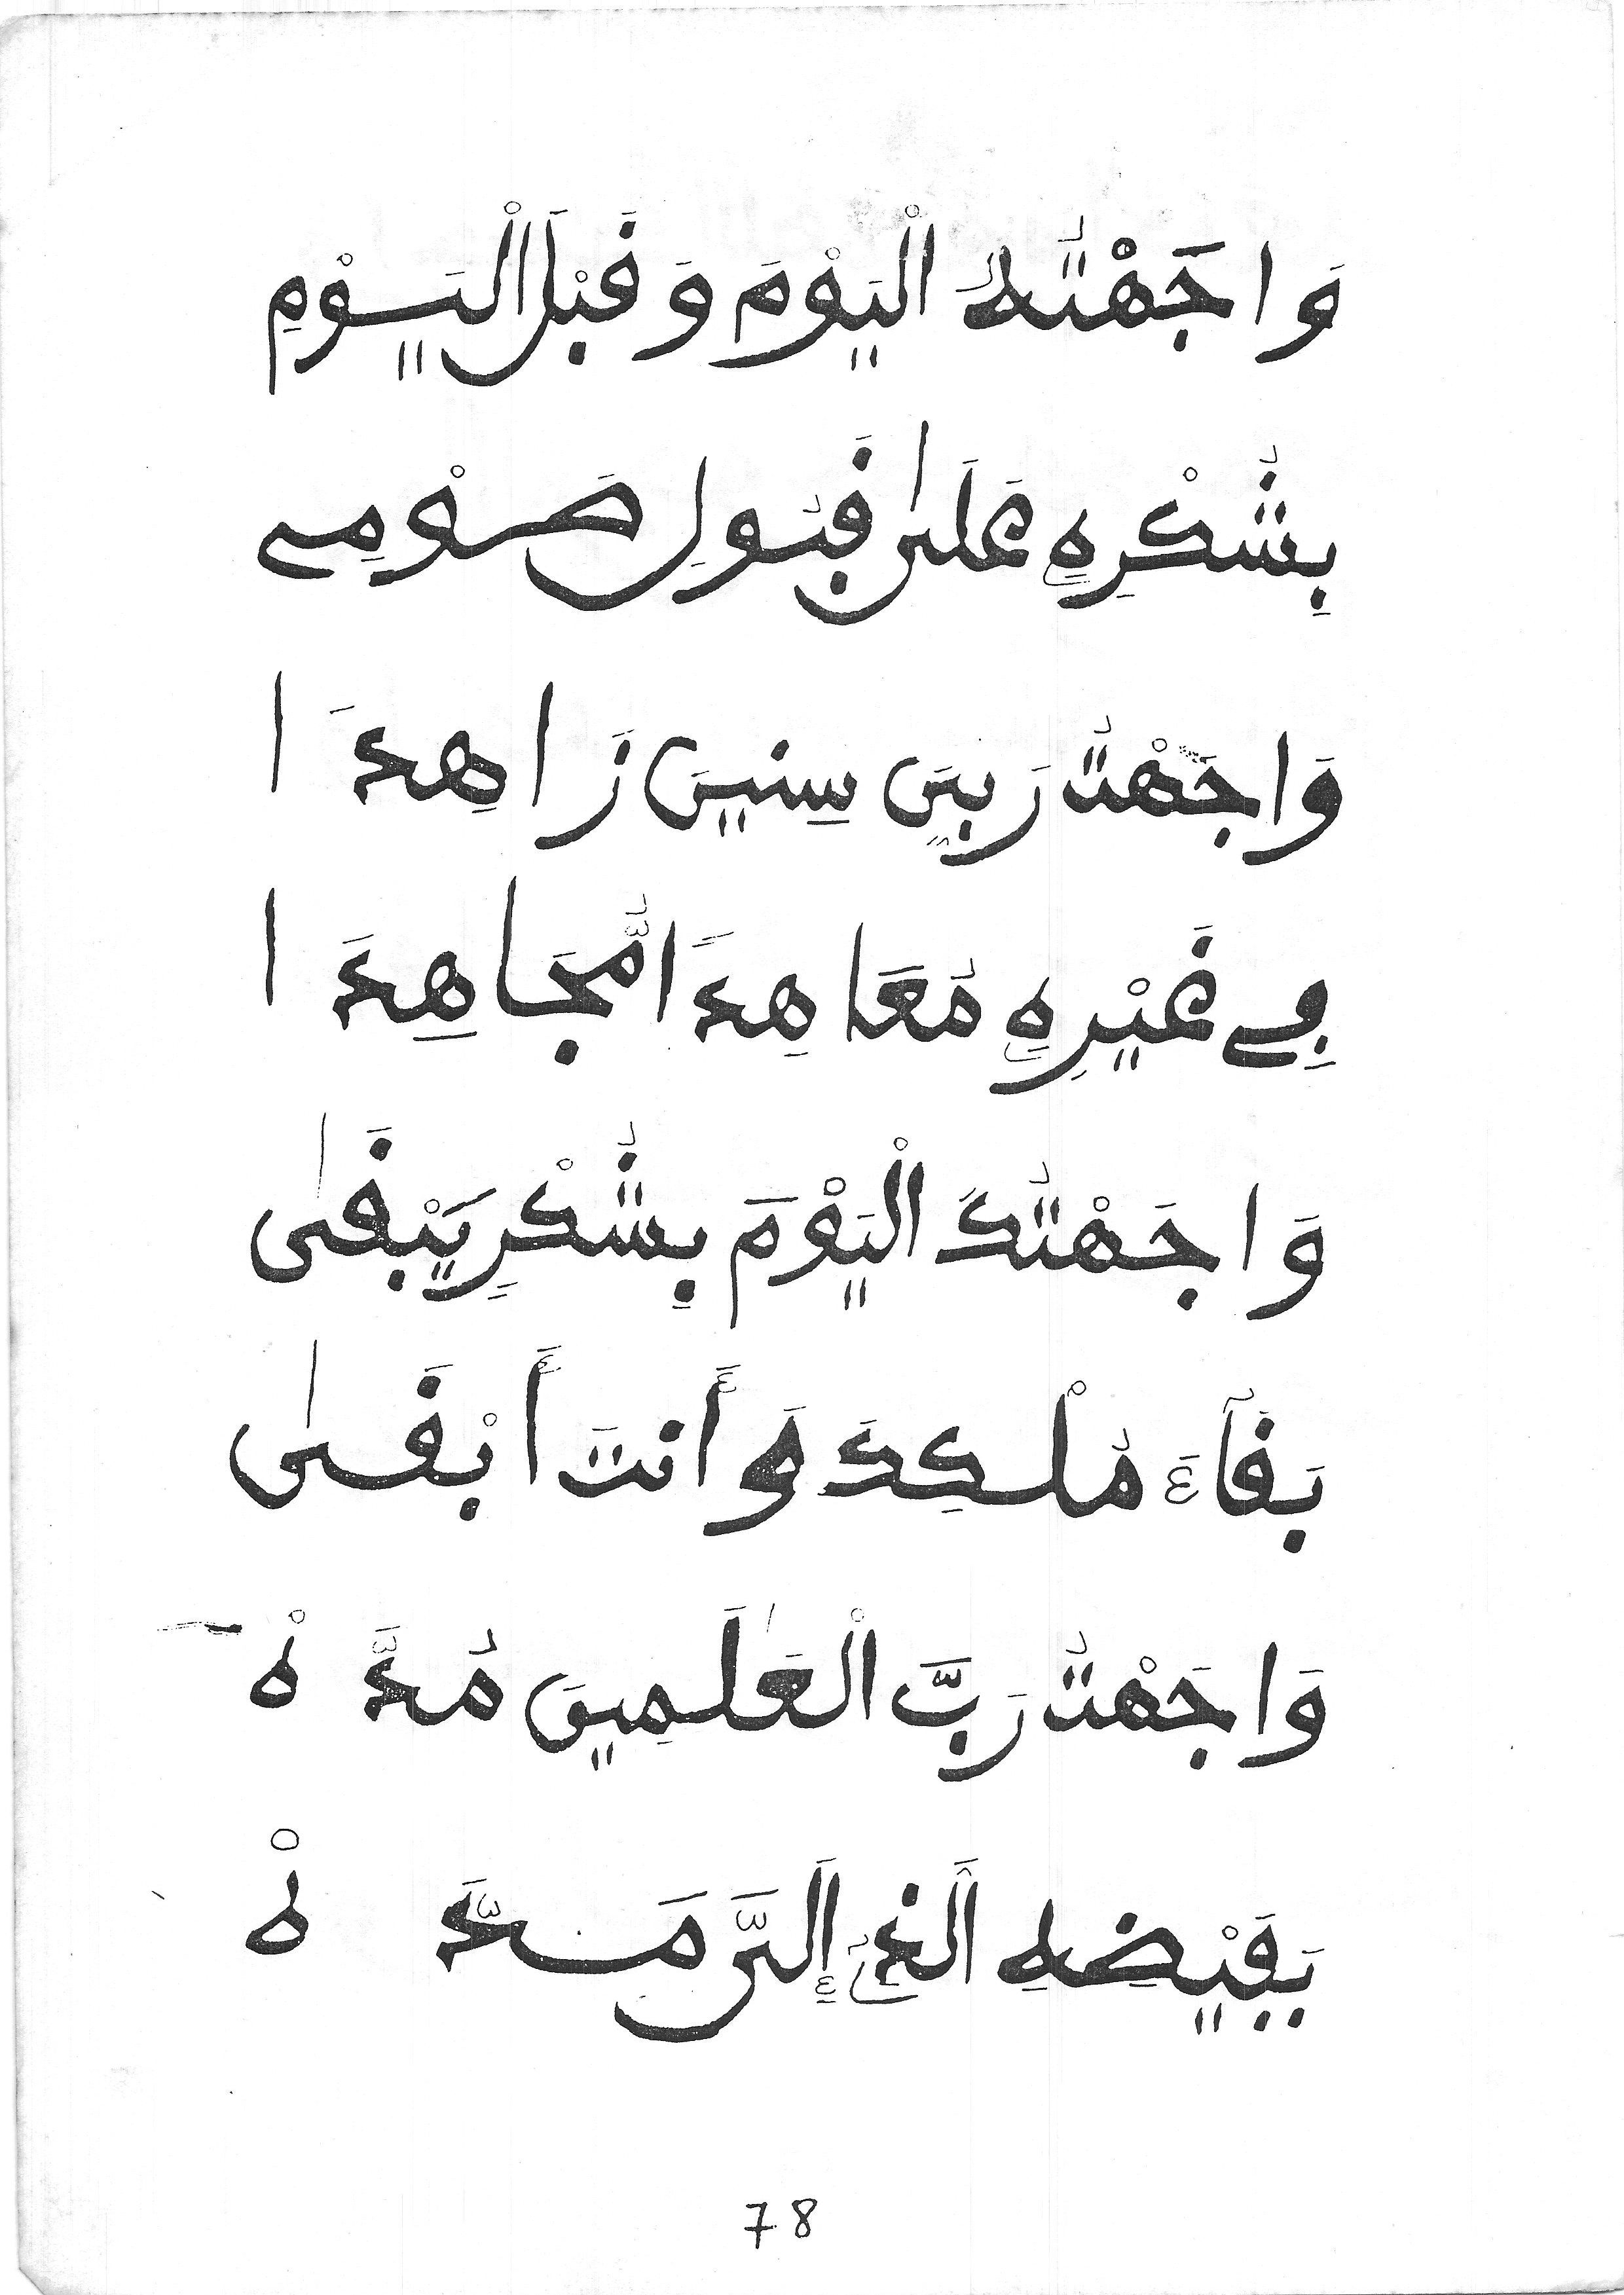 وَاجَهْتُهُ الْيَوْمَ وَقَبْلَ الْيَوْمِ
بِشُكْرِهِ عَلَىٰ قَبُولِ صَوْمِي
وَاجَهْتُ رَبِّيَ سِنِينَ زَاهِدَا
فِي غَيْرِهِ مُعَاهِدًا مُّجَاهِدَا
وَاجَهْتُكَ الْيَوْمَ بِشُكْرٍ يَبْقَىٰ
بَقَآءَ مُلْكِكَ وَأَنتَ أَبْقَىٰ
وَاجَهْتُ رَبَّ الْعَٰلَمِينَ مُدَّهْ
بِفَيْضِهِ الَّذِي إِلَيَّ مَدَّهْ
78